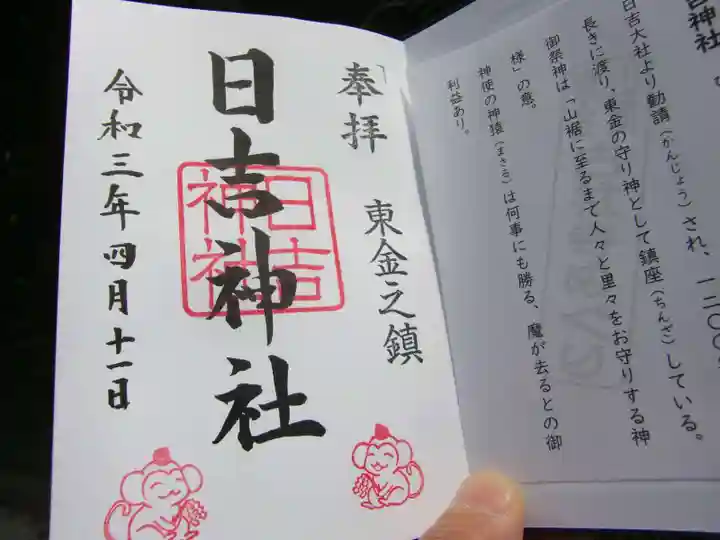 吉神社
日吉大社より勧請(かんじょう)され、一二〇〇
長きに渡り、東金の守り神として鎮座(ちんざ)している。
御祭神は「山裾に至るまで人々と里々をお守りする神
様」の意。
神使の神猿(まさる)は何事にも勝る、魔が去るとの御
利益あり。
奉拝
東金之鎮
日吉神社
日吉神社
令和三年四月十一日